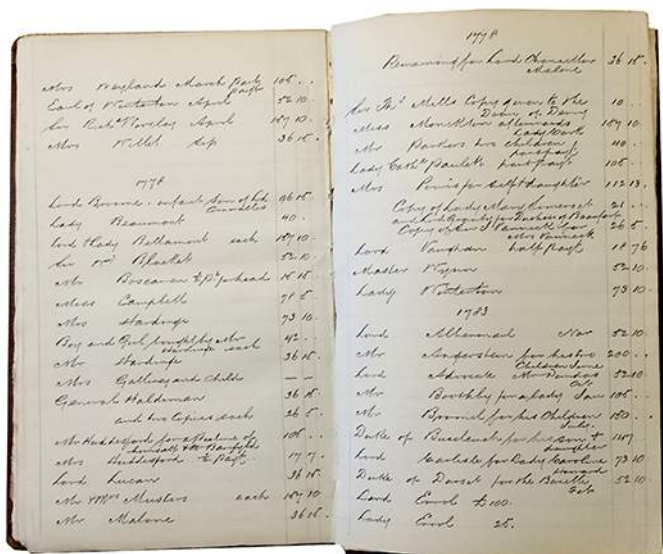 Mrs Wayland March part 105 . .
past
Earl of Winterton April 52 10
Sir Richd Worsley April 157 10 .
Mrs Willet Sep 36 15 .
1778
Lord Broome . infant son of Ld 96 15 .
Cornwallis
Lady Beaumont 40 .
Lord & Lady Bellamont each 157 10 .
Sir Blacket 52 10 .
Mr Boscawen 18 18 .
Miss Campbell 78 5 .
Mrs Hardinge 73 10 .
Boy and Girl bought by Mr 42 . .
Hardinge each
Mr Hardinge 36 15 .
Mrs Gallway and Child — —
General Haldiman 36 15
and two Copies each 26 5 .
Mr Huddesford for a Picture of 105 . .
himself & Mr Bampfylde
Mrs Huddesford ½ payt 17 7 .
Lord Lucan 36 15
Mr & Mrs Musters each 157 10
Mr Malone 36 15
1778
Remaining for Lord Chancellor 36 15 .
Malone
Sir Thos Mills Copy given to the 10 . .
Deanery of Derry
Miss Monckton afterwards 157 10
Lady Cork
Mr Parkers two children 40 . .
part payt
Lady Cathe Paulett part payt 105 . .
Mrs Penis for self & daughter 112 13 .
Copy of Lady Mary Somerset 21 . .
and Lord Granby for Duchess of Beaufort
Copy of Sir J Vanneck for 26 5 .
Mrs Vanneck
Lord Vaughan half payt 18 7 6
Master Wynn 52 10
Lady Winterton 73 10
1783
Lord Albemarle Nov 52 10
Mr Angerstein for his two 200 . .
Children June
Lord Advocate Mr Dundas 52 10
Oct
Mr Boothby for a lady Jan 105 . .
Mr Brummel for his Children 150 . .
July
Duke of Buccleuch for his son & 157
daughter
Lord Carlisle for Lady Caroline 73 10
Howard
Duke of Dorset for the Bacelli 52 10
Oct
Lord Errol £100.
Lady Errol 25.